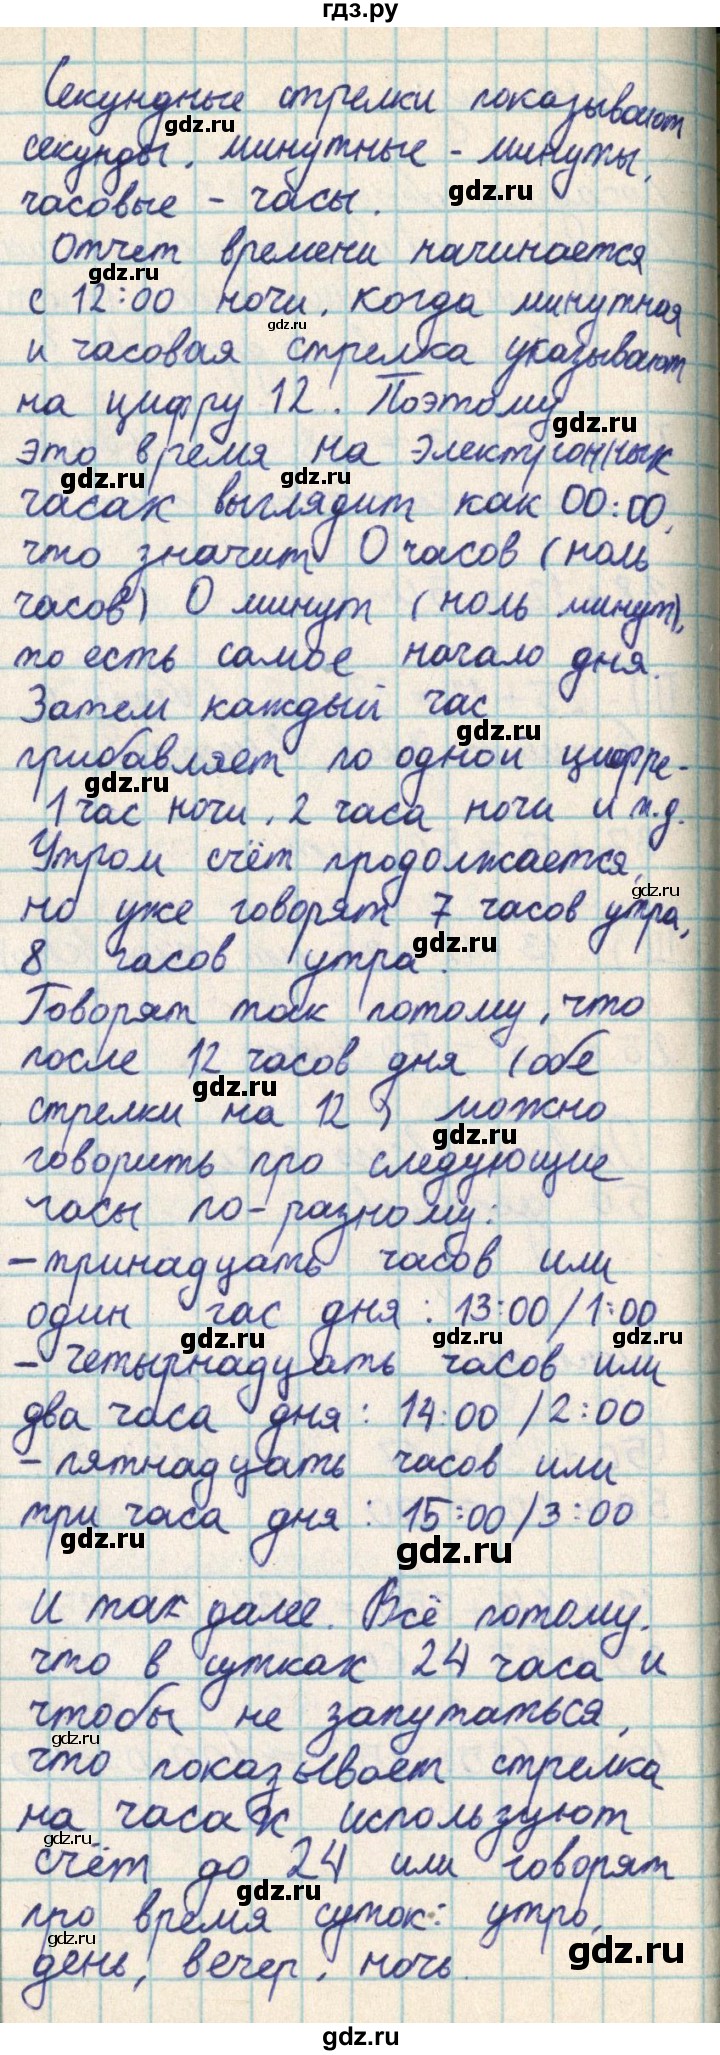 гдз.ру
Секундные стрелки показывают
секунды, минутные - минуты,
часовые - часы.
Отчет времени начинается
с 12:00 ночи, когда минутная
и часовая стрелка указывают
на цифру 12. Поэтому
это время на электронных
часах выглядит как 00:00,
что значит 0 часов (ноль
часов) 0 минут (ноль минут),
то есть самое начало дня.
Затем каждый час
прибавляет по одной цифре-
1 час ночи, 2 часа ночи и т.д.
Утром счёт продолжается,
но уже говорят 7 часов утра,
8 часов утра.
Говорят так потому, что
после 12 часов дня (обе
стрелки на 12) можно
говорить про следующие
часы по-разному:
- тринадцать часов или
один час дня: 13:00/1:00
- четырнадцать часов или
два часа дня: 14:00/2:00
- пятнадцать часов или
три часа дня: 15:00/3:00
И так далее. Всё потому,
что в сутках 24 часа и
чтобы не запутаться,
что показывает стрелка
на часах используют
счёт до 24 или говорят
про время суток: утро,
день, вечер, ночь.
gdz.ru